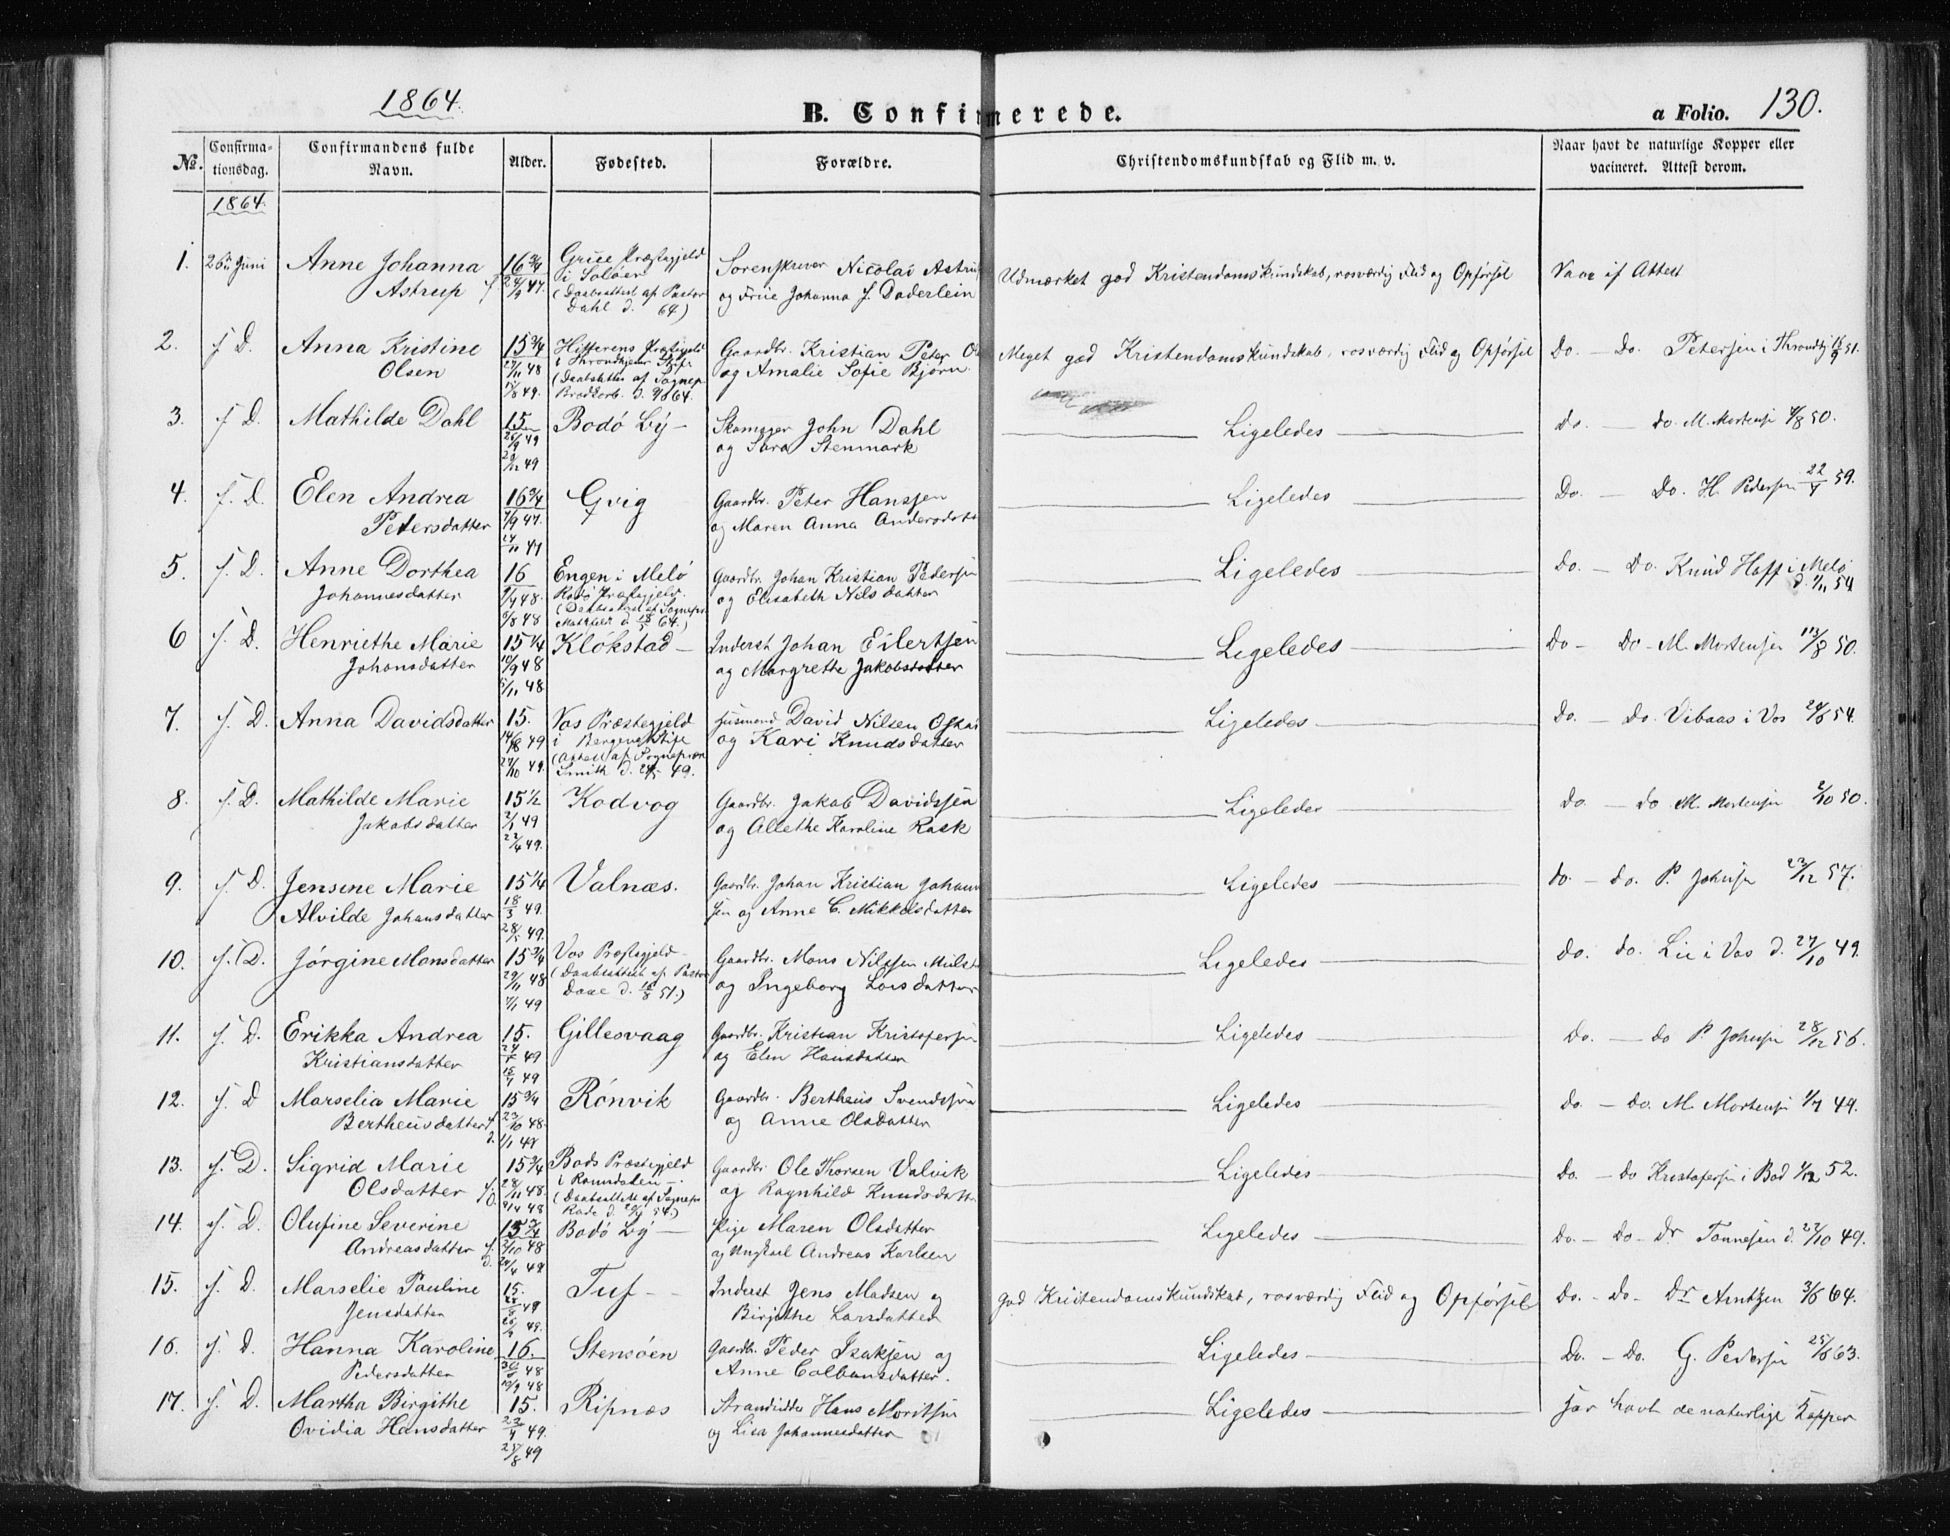 1864.
B. Confirmerede.
a Folio. 130.
No.
Confirma-
tionsdag.
Confirmandens fulde
Navn.
Alder.
Fødested.
Forældre.
Christendomskundskab og Flid m. v.
Naar havt de naturlige Kopper eller
vacineret. Attest derom.
1864.
1. 26 Juni Anne Johanna 16 3/4 Grue Præstegjeld Sorenskriver Nicolai Astrup Udmærket god Kristendomskundskab, rosværdig Flid og Opførsel Vacc if Attest
Astrup f 24/9 47. i Soløer og Frue Johanna f. Doderlein
(Daabsattest af Pastor
Dahl d. 64)
2. f D. Anna Kristine 15 3/4 Hitterens Præstegjeld Gaardbr. Kristian Peter Ol Meget god Kristendomskundskab, rosværdig Flid og Opførsel Do. — Do. Petersen i Throndhj 51.
Olsen 27/11 48 i Throndhjems Stift og Amalie Sofie Bjørn.
/8 49. (Daabsattest af Sognepr.
3. f D. Mathilde Dahl 15 Bodö By — Skomager John Dahl Ligeledes Do. — do. M. Mortensen /8 50.
25/9 49 og Sara Stenmark
49
4. f. D. Elen Andrea 16 3/4 Gvig Gaardbr. Peter Hanssen Ligeledes Do. — Do. H. Pedersen 22/4 59.
Petersdatter /9 47. og Maren Anna Andersdatt
47
5. f. D. Anne Dorthea 16 Engen i Melö Gaardbr. Johan Kristian Pedersen Ligeledes Do. — Do. Knud Hoff i Melö
Johannesdatter 48. Rodö Præstegjeld. og Elisabeth Nilsdatter d. 1/11 54
/8 48 64.)
6 f. D. Henriethe Marie 15 1/4 Klökstad — Inderst Johan Eilertsen Ligeledes Do — Do — M. Mortensen /8 50.
Johansdatter 10/9 48 og Margrethe Jakobsdatter
/11 48
7. f. D. Anna Davidsdatter 15. Vos Præstegjeld Husmand David Nilsen Ligeledes Do — Do. Vibaas i Vos 24/6 54.
14/8 49 i Bergens Stift og Kari Knudsdatter
27/10 49. (Attest af Sognepræst
Smith d. 49.
8. f. D. Mathilde Marie 15 1/2 Kodvog Gaardbr. Jakob Davidssen Ligeledes Do — Do M. Mortensen 2/10 50.
Jakobsdatter 2/1 49 og Allethe Karoline Rask
22/4 49.
9. f. D. Jensine Marie 15 1/4 Valnæs. Gaardbr. Johan Kristian Johann Ligeledes Do. — do. P. Johnsen 23/12 57.
Alvilde Johansdatter 18/3 49. sen og Anne C. Mikkelsdatter
28/5 49.
10. f. D. Jørgine Monsdatter 15 3/4 Vos Præstegjeld Gaardbr. Mons Nilssen Ligeledes Do. do. Lie i Vos d. 27/10 49.
29/11 48 (Daabsattest af Pastor og Ingeborg Loisdatter
/1 49 Daae d. /8 51.)
11. f. D. Erikka Andrea 15. Gillesvaag Gaardbr. Kristian Kristofersen Ligeledes Do. — do P. Johnsen 28/12 56.
Kristiansdatter 49 og Elen Hansdatter
49
12. f. D Marselia Marie 15 3/4 Rönvik Gaardbr. Bertheus Svendsen Ligeledes Do. — do. M. Mortensen 1/7 49.
Bertheusdatter 23/10 48. og Anne Olsdatter
1/1 49
13. f. D. Sigrid Marie 15 3/4 Bods Præstegjeld Gaardbr. Ole Thorsen Valvik Ligeledes Do. — do Kristofersen i Bod 1/12 52.
Olsdatter 28/11 48. i Romsdalen — og Ragnhild Knudsdatt
48 (Daabsattest af Sognepr
Rode d. 54)
14. f. D. Olufine Severine 15 3/4 Bodö By — Pige Maren Olsdatter Ligeledes Do. — Do — Dr. Tønnesen d. 27/10 49.
Andreasdatter 2/10 48 og Ungkarl Andreas Karlsen
49
15. f. D. Marselie Pauline 15. Tuf — Inderst Jens Madsen og God Kristendomskundskab, rosværdig Flid og Opförsel Do. — Do — Dr Arntzen 3/6 64.
Jensdatter 49 Birgithe Larsdatter
49.
16. f. D. Hanna Karoline 16. Stensöen Gaardbr. Peder Isaksen og Ligeledes Do. — Do. G. Pedersen 25/6 63.
Pedersdatter 48 Anne Colbansdatter.
48
17. f. D. Martha Birgithe 15. Ripnæs Strandsidder Hans Moritsen Ligeledes har havt de naturlige Kopper
Ovidia Hansdatter 23/4 49. og Lisa Johannesdatter
/8 49